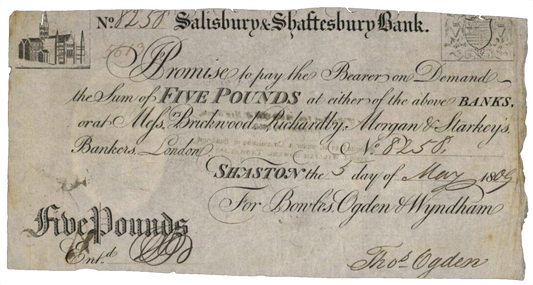 No. 8258 Salisbury & Shaftesbury Bank.
I Promise to pay the Bearer on Demand
the Sum of FIVE POUNDS at either of the above BANKS.
or at Mess. Brickwood, Richardby, Morgan & Starkey's,
Bankers, London No. 8258
SHASTON the 5 day of May 1809
For Bowles, Ogden & Wyndham
Five Pounds
Ent.d
Thos. Ogden